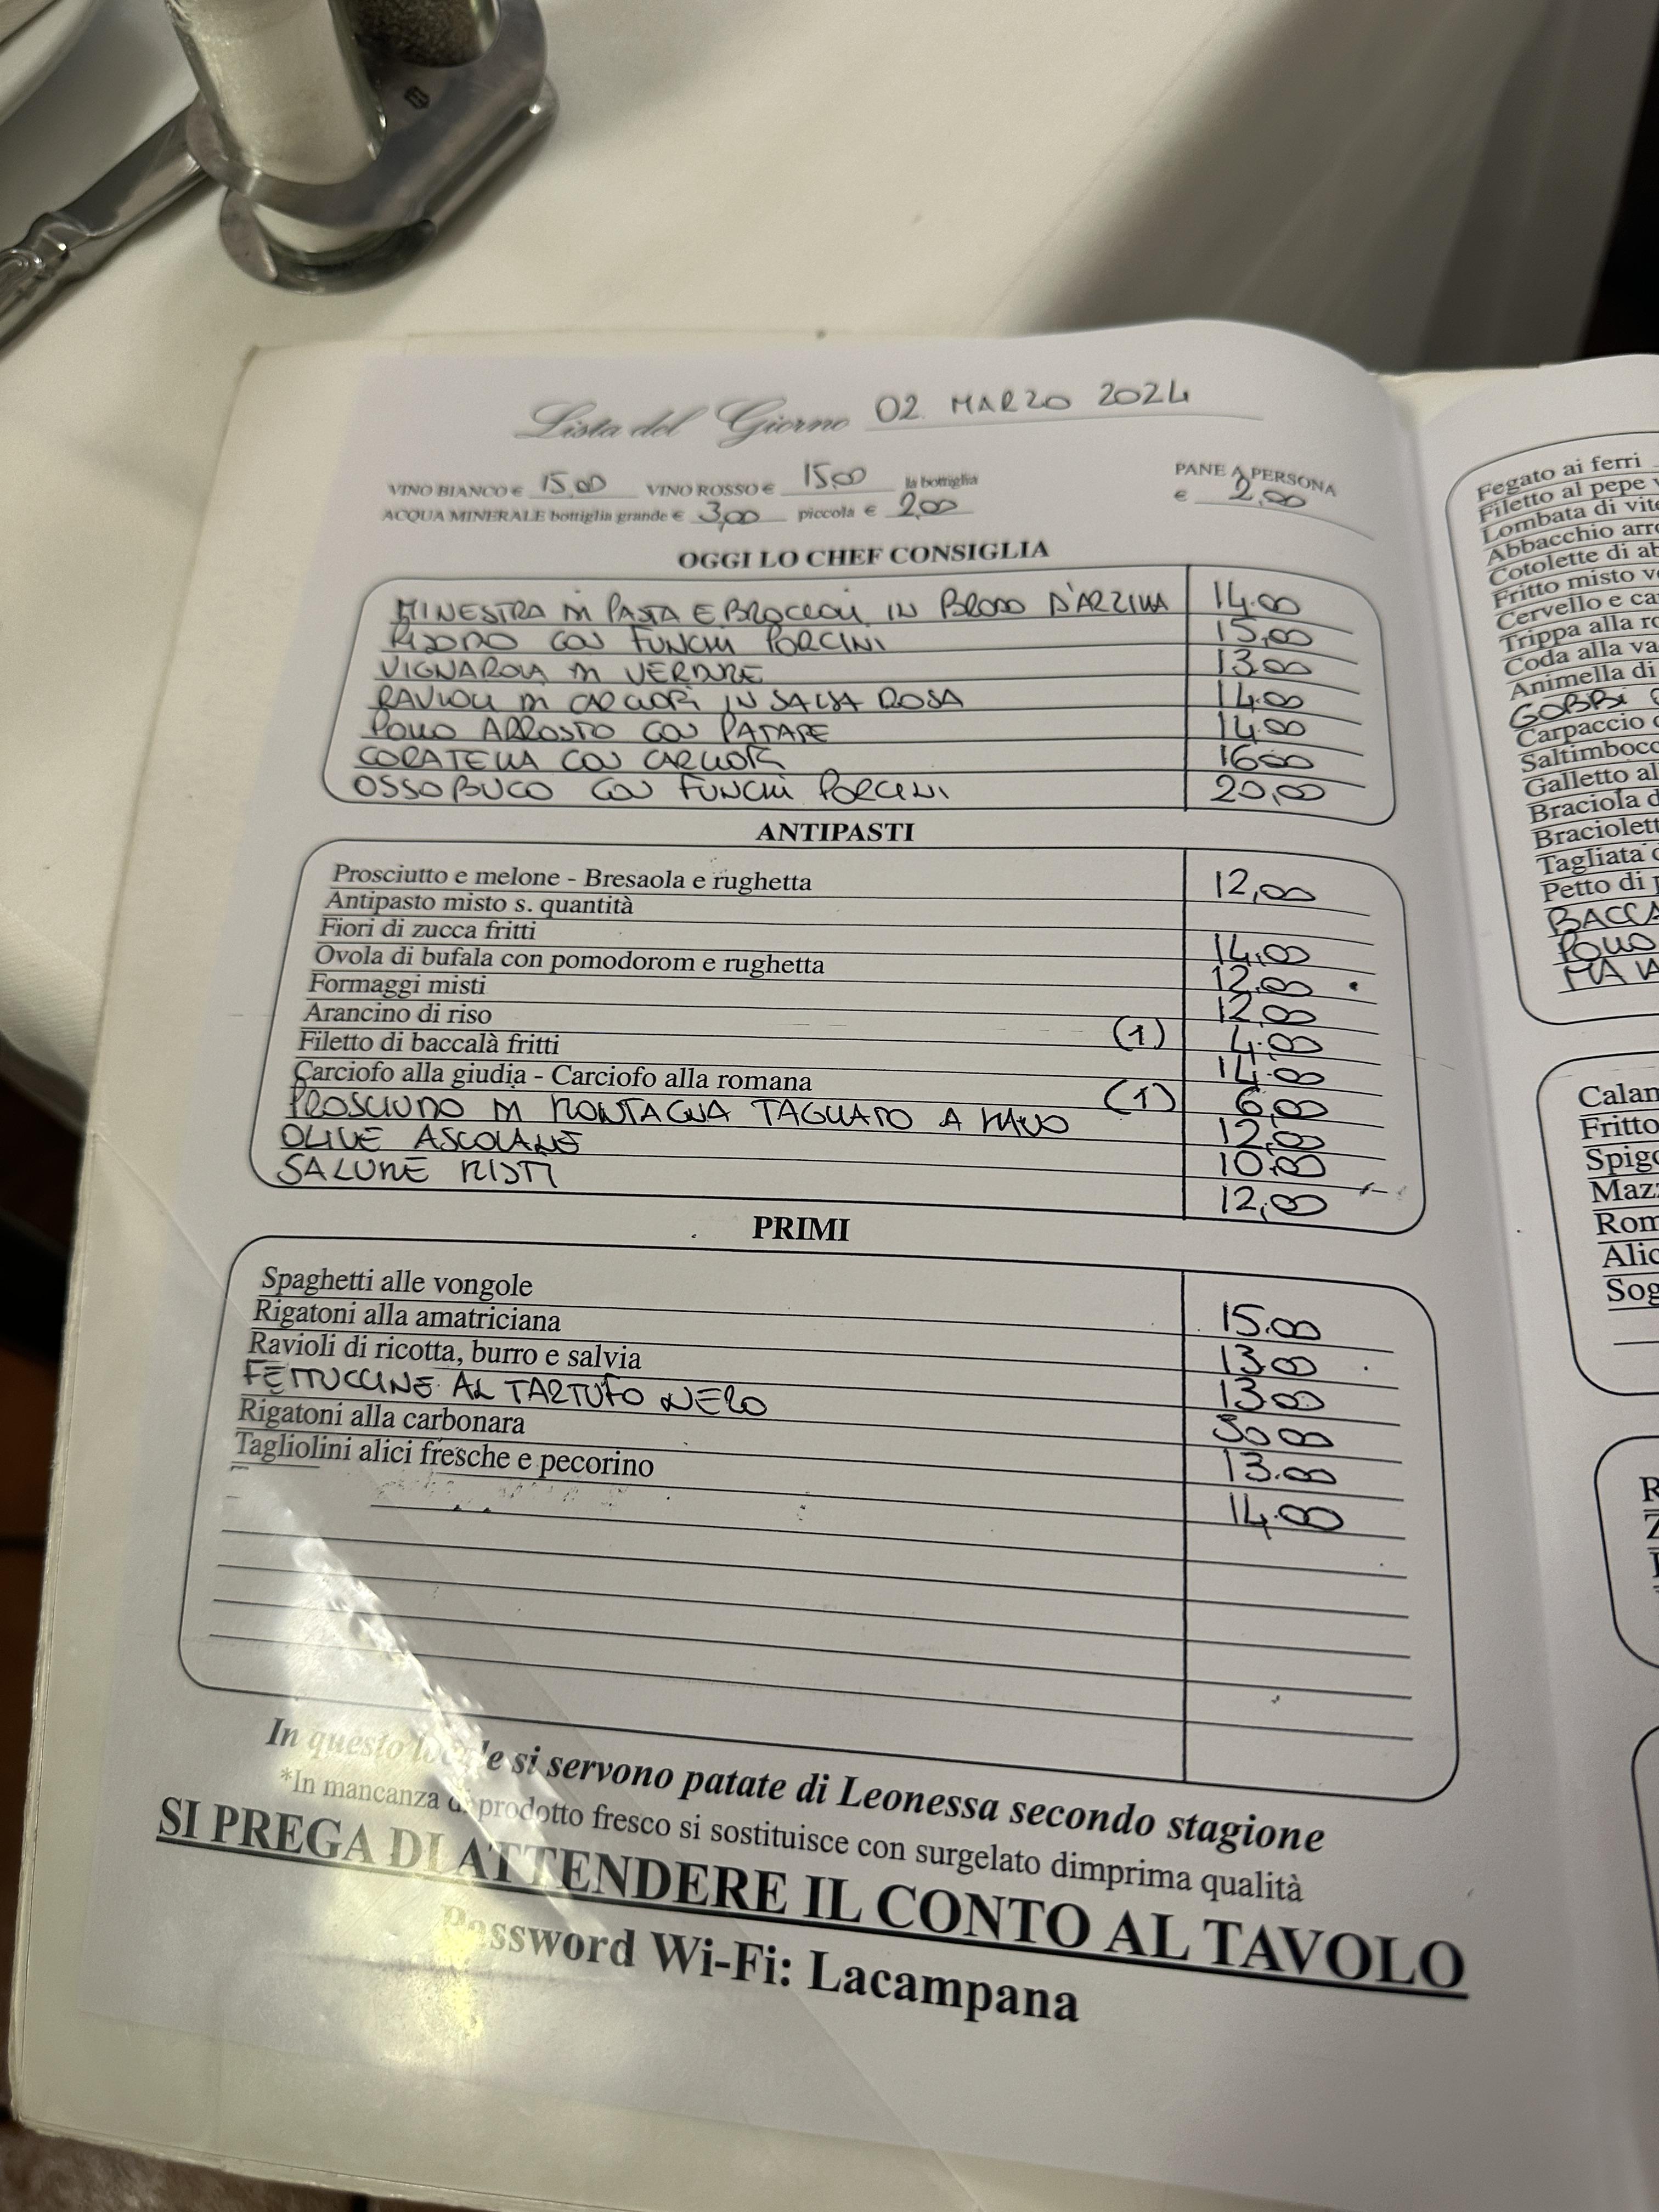 Lista del Giorno 02 MARZO 2024
VINO BIANCO € 15,00 VINO ROSSO € 15,00 la bottiglia
ACQUA MINERALE bottiglia grande € 3,00 piccola € 2,00
PANE A PERSONA
€ 2,00
OGGI LO CHEF CONSIGLIA
MINESTRA DI PASTA E BROCCOLI IN BRODO D'ARZILLA 14.00
RISOTTO CON FUNGHI PORCINI 15,00
VIGNAROLA DI VERDURE 13.00
RAVIOLI DI CARCIOFI IN SALSA ROSA 14.00
POLLO ARROSTO CON PATATE 14.00
CORATELLA CON CARCIOFI 16.00
OSSOBUCO CON FUNGHI PORCINI 20,00
ANTIPASTI
Prosciutto e melone - Bresaola e rughetta 12,00
Antipasto misto s. quantità
Fiori di zucca fritti 14,00
Ovola di bufala con pomodorom e rughetta 12.00
Formaggi misti 12,00
Arancino di riso (1) 4.00
Filetto di baccalà fritti 14.00
Carciofo alla giudia - Carciofo alla romana (1) 6,00
PROSCIUTTO DI MONTAGNA TAGLIATO A MANO 12,00
OLIVE ASCOLANE 10.00
SALUME MISTI 12,00
PRIMI
Spaghetti alle vongole 15.00
Rigatoni alla amatriciana 13.00
Ravioli di ricotta, burro e salvia 13.00
FETTUCCINE AL TARTUFO NERO 30.00
Rigatoni alla carbonara 13.00
Tagliolini alici fresche e pecorino 14.00
In questo locale si servono patate di Leonessa secondo stagione
*In mancanza di prodotto fresco si sostituisce con surgelato dimprima qualità
SI PREGA DI ATTENDERE IL CONTO AL TAVOLO
Password Wi-Fi: Lacampana
Fegato ai ferri
Filetto al pepe
Lombata di
Abbacchio
Cotolette di
Fritto misto
Cervello e
Trippa alla
Coda alla
Animella di
GOBBI
Carpaccio
Saltimbocc
Galletto al
Braciola
Braciolett
Tagliata
Petto di
BACCA
POLLO
Calam
Fritto
Spig
Maz
Rom
Alic
Sog